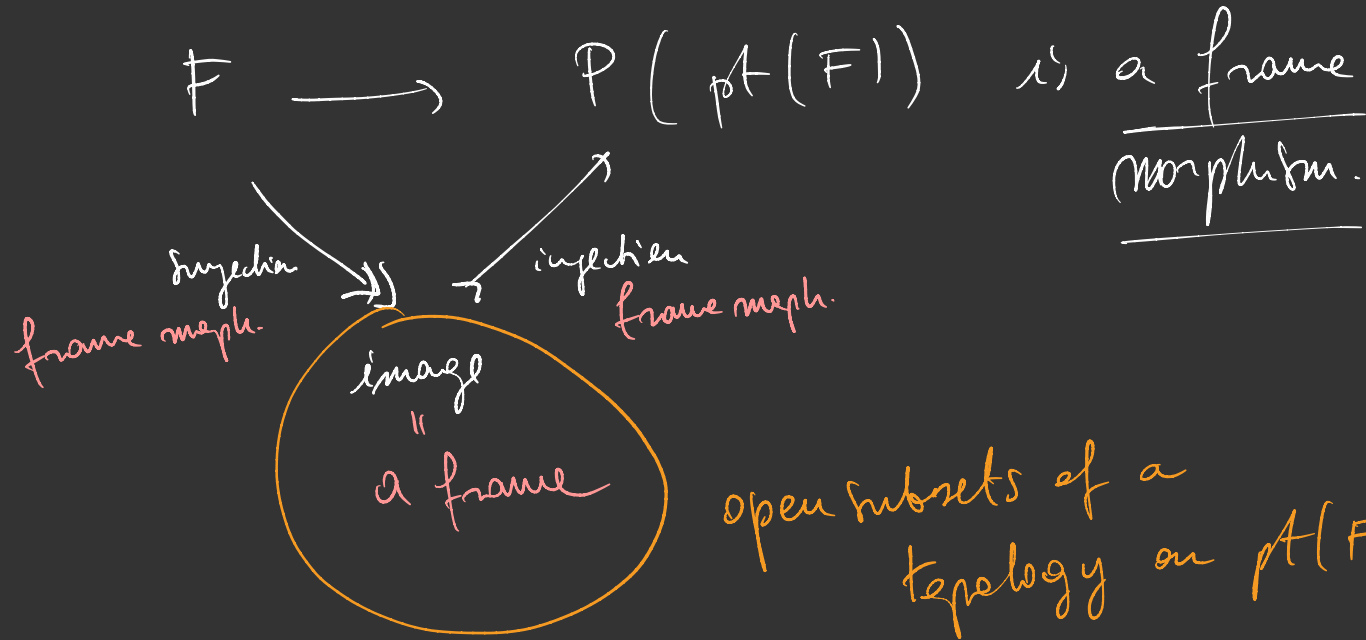 F → P(pt(F)) is a frame
morphism.
surjection
frame morph.
injection
frame morph.
image
=
a frame
open subsets of a
topology on pt(F